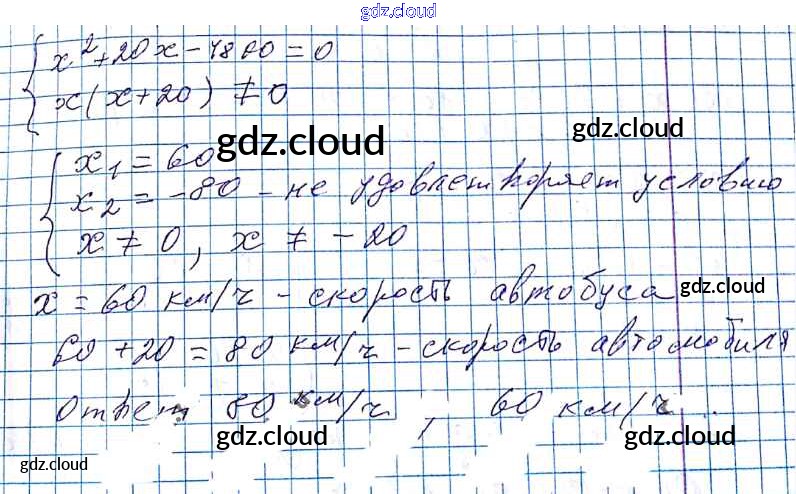 gdz.cloud
x² + 20x - 4800 = 0
x(x + 20) ≠ 0
gdz.cloud
gdz.cloud
x₁ = 60
x₂ = -80 - не удовлетворяет условию
x ≠ 0, x ≠ -20
x = 60 км/ч - скорость автобуса
gdz.cloud
60 + 20 = 80 км/ч - скорость автомобиля
Ответ 80 км/ч, 60 км/ч.
gdz.cloud
gdz.cloud
gdz.cloud